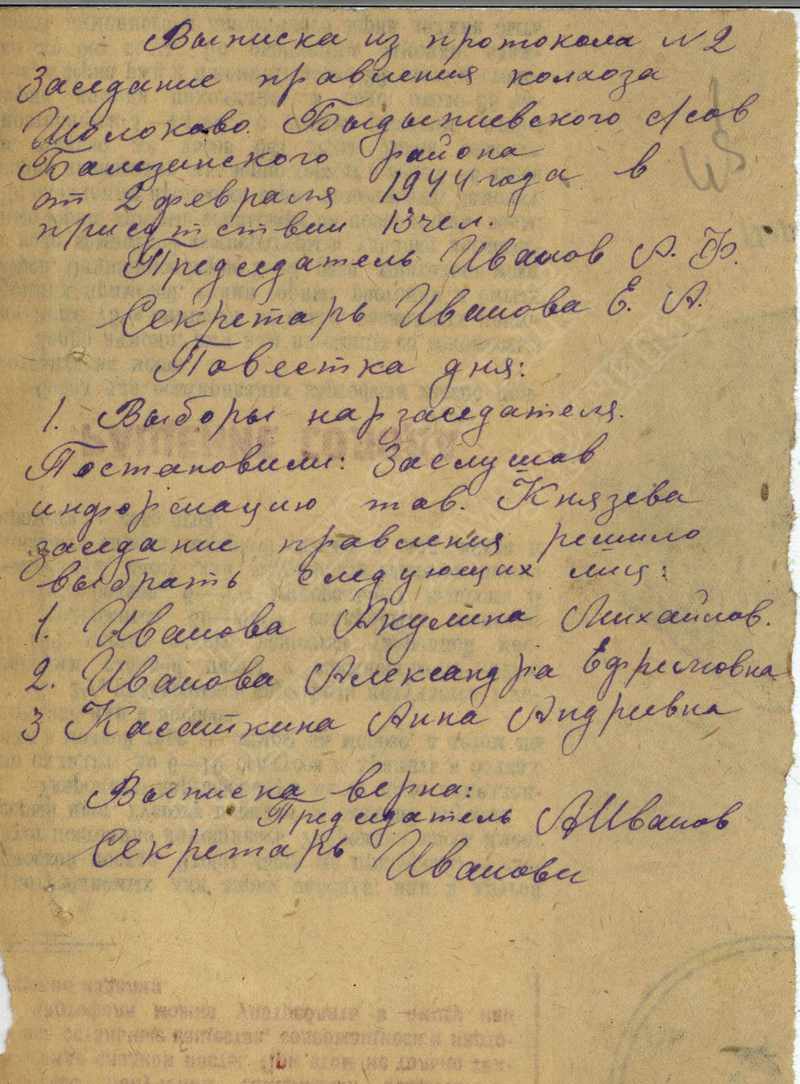 Выписка из протокола №2
Заседание правления колхоза
Шолоково Быдыпиевского с/сов
Балезинского района
от 2 февраля 1944 года в
присутствии 13 чел.
Председатель Иванов А. Ф.
Секретарь Иванова Е. А.
Повестка дня:
1. Выборы нарзаседателя.
Постановили: Заслушав
информацию тов. Князева
заседание правления решило
выбрать следующих лиц:
1. Иванова Акулина Михайлов.
2. Иванова Александра Ефремовна
3 Касаткина Анна Андреевна
Выписка верна:
Председатель АИванов
Секретарь Иванова